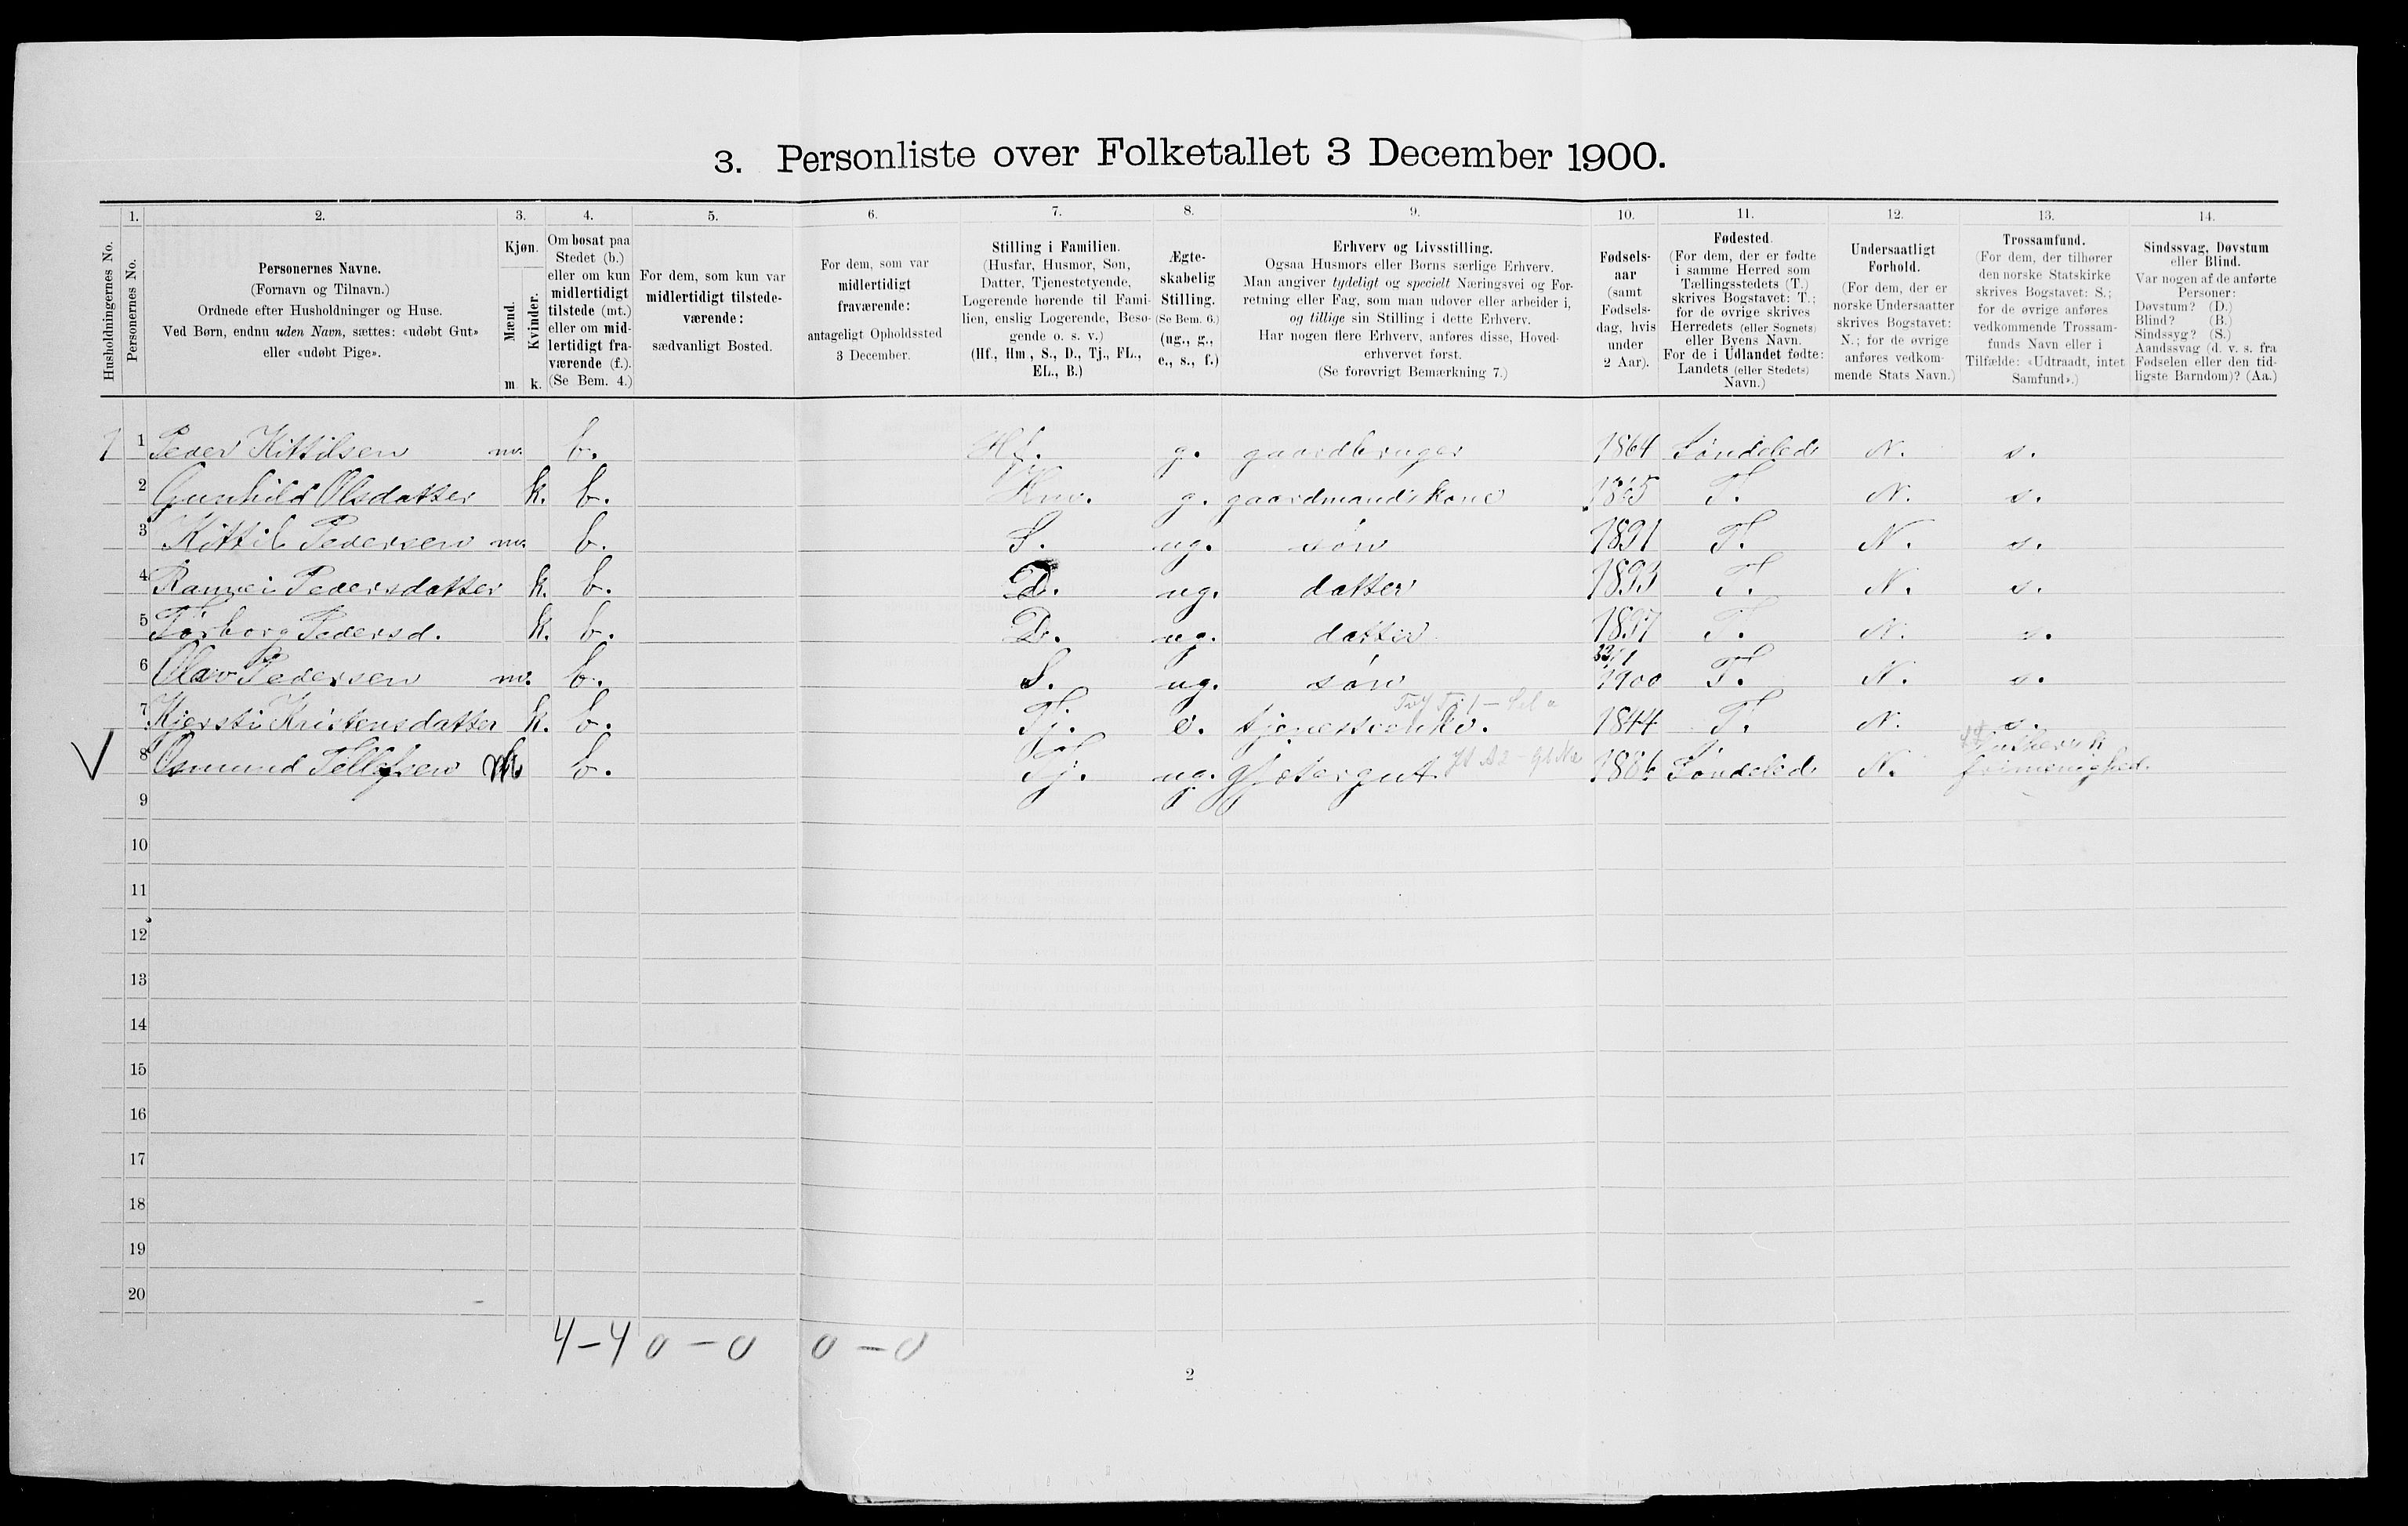 3. Personliste over Folketallet 3 December 1900.
1. 2. 3. 4. 5. 6. 7. 8. 9. 10. 11. 12. 13. 14.
Husholdningernes No.
Personernes No.
Personernes Navne.
(Fornavn og Tilnavn.)
Ordnede efter Husholdninger og Huse.
Ved Børn, endnu uden Navn, sættes: «udøbt Gut»
eller «udøbt Pige».
Kjøn.
Mænd.
Kvinder.
m. k.
Om bosat paa
Stedet (b.)
eller om kun
midlertidigt
tilstede (mt.)
eller om mid-
lertidigt fra-
værende (f.).
(Se Bem. 4.)
For dem, som kun var
midlertidigt tilstede-
værende:
sædvanligt Bosted.
For dem, som var
midlertidigt
fraværende:
antageligt Opholdssted
3 December.
Stilling i Familien.
(Husfar, Husmor, Søn,
Datter, Tjenestetyende,
Logerende hørende til Fami-
lien, enslig Logerende, Besø-
gende o. s. v.)
(Hf., Hm., S., D., Tj., FL.,
EL., B.)
Ægte-
skabelig
Stilling.
(Se Bem. 6.)
(ug., g.,
e., s., f.)
Erhverv og Livsstilling.
Ogsaa Husmors eller Børns særlige Erhverv.
Man angiver tydeligt og specielt Næringsvei og For-
retning eller Fag, som man udover eller arbeider i,
og tillige sin Stilling i dette Erhverv.
Har nogen flere Erhverv, anføres disse, Hoved-
erhvervet først.
(Se forøvrigt Bemærkning 7.)
Fødsels-
aar
(samt
Fødsels-
dag, hvis
under
2 Aar).
Fødested.
(For dem, der er fødte
i samme Herred som
Tællingsstedets (T.)
skrives Bogstavet: T.;
for de øvrige skrives
Herredets (eller Sognets)
eller Byens Navn.
For de i Udlandet fødte:
Landets (eller Stedets)
Navn.)
Undersaatligt
Forhold.
(For dem, der er
norske Undersaatter
skrives Bogstavet:
N.; for de øvrige
anføres vedkom-
mende Stats Navn.)
Trossamfund.
(For dem, der tilhører
den norske Statskirke
skrives Bogstavet: S.;
for de øvrige anføres
vedkommende Trossam-
funds Navn eller i
Tilfælde: «Udtraadt, intet
Samfund».)
Sindssvag, Døvstum
eller Blind.
Var nogen af de anførte
Personer:
Døvstum? (D.)
Blind? (B.)
Sindssyg? (S.)
Aandssvag (d. v. s. fra
Fødselen eller den tid-
ligste Barndom)? (Aa.)
1 1 Peder Kittilsen m. b. Hf. g. gaardbruger 1864 Søndeled N. s.
2 Gunhild Olsdatter k. b. Hm. g. gaardmandskone 1865 T. N. s.
3 Kittil Pedersen m. b. S. ug. søn 1891 T. N. s.
4 Ranvei Pedersdatter k. b. D. ug. datter 1893 T. N. s.
5 Torborg Pedersd. k. b. D. ug. datter 1897 T. N. s.
6 Olav Pedersen m. b. S. ug. søn 1900 T. N. s.
7 Kjersti Kristensdatter k. b. Tj. e. tjenesteenke. 1844 T. N. s.
8 Osmund Tellefsen m b. Tj. ug. gjætergut. 1886 Søndeled N. Luthersk
frimenighed.
9
10
11
12
13
14
15
16
17
18
19
20
4–4 0–0 0–0
2